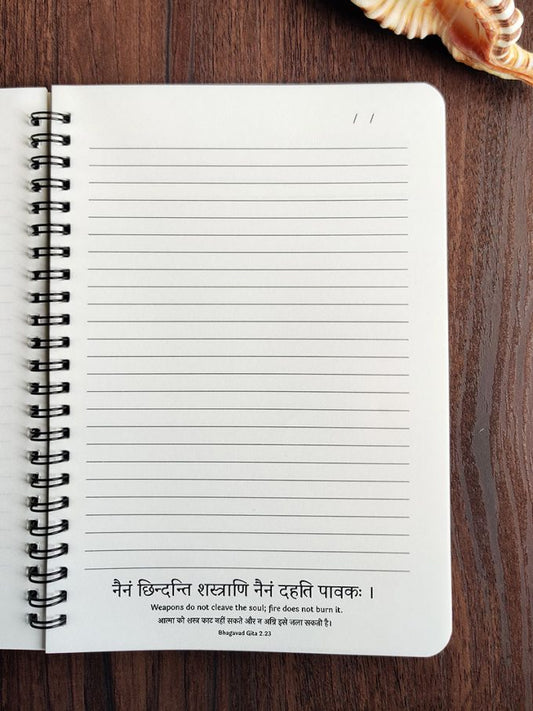 / /
नैनं छिन्दन्ति शस्त्राणि नैनं दहति पावकः ।
Weapons do not cleave the soul; fire does not burn it.
आत्मा को शस्त्र काट नहीं सकते और न अग्नि इसे जला सकती है।
Bhagavad Gita 2.23